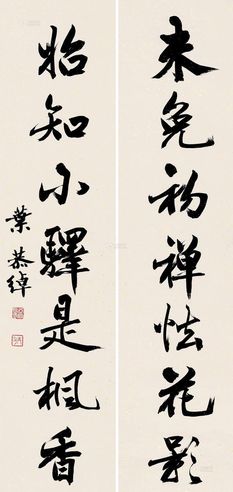 未免初禪怯花影
始知小驛是楓香
葉恭綽